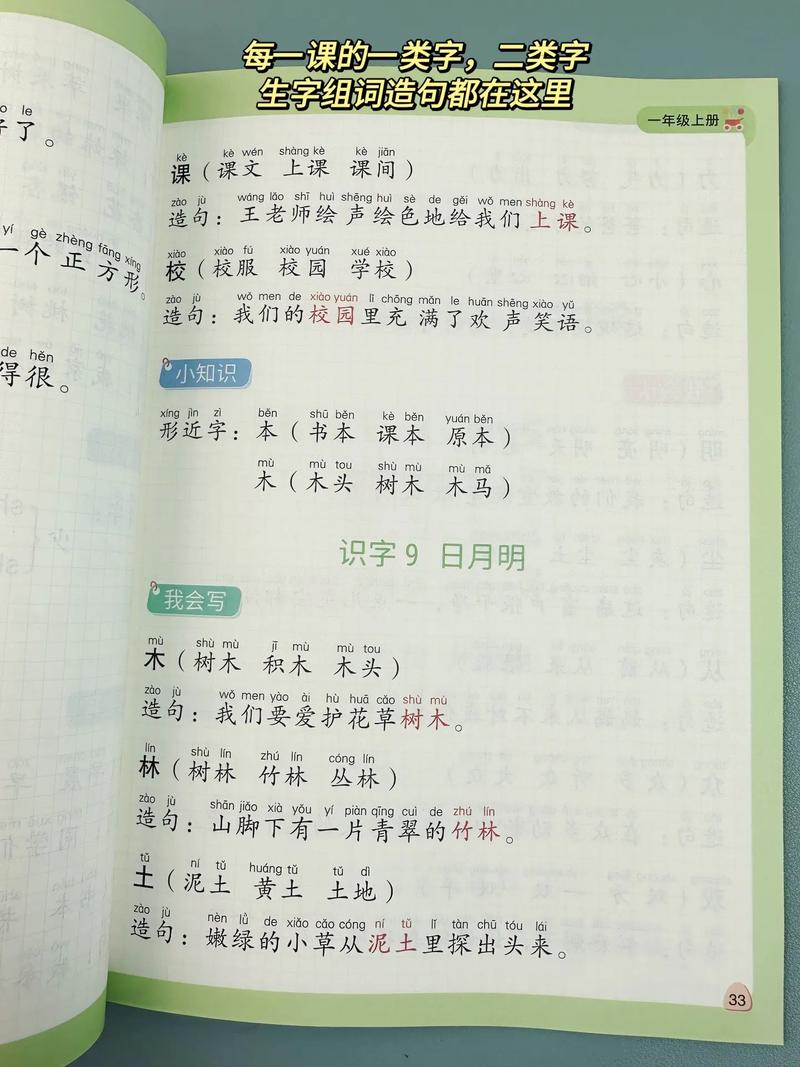 每一课的一类字，二类字
生字组词造句都在这里
一年级上册
le
了。
yí gè zhèng fāng xíng
一个正方形。
de hěn
得很。
kè kè wén shàng kè kè jiān
课（课文 上课 课间）
zào jù wáng lǎo shī huì shēng huì sè de gěi wǒ men shàng kè
造句：王老师绘声绘色地给我们上课。
xiào xiào fú xiào yuán xué xiào
校（校服 校园 学校）
zào jù wǒ men de xiào yuán lǐ chōng mǎn le huān shēng xiào yǔ
造句：我们的校园里充满了欢声笑语。
小知识
xíng jìn zì běn shū běn kè běn yuán běn
形近字：本（书本 课本 原本）
mù mù tou shù mù mù mǎ
木（木头 树木 木马）
识字9 日月明
我会写
mù shù mù jī mù mù tou
木（树木 积木 木头）
zào jù wǒ men yào ài hù huā cǎo shù mù
造句：我们要爱护花草树木。
lín shù lín zhú lín cóng lín
林（树林 竹林 丛林）
zào jù shān jiǎo xià yǒu yí piàn qīng cuì de zhú lín
造句：山脚下有一片青翠的竹林。
tǔ ní tǔ huáng tǔ tǔ dì
土（泥土 黄土 土地）
zào jù nèn lǜ de xiǎo cǎo cóng ní tǔ lǐ tàn chū tóu lái
造句：嫩绿的小草从泥土里探出头来。
33